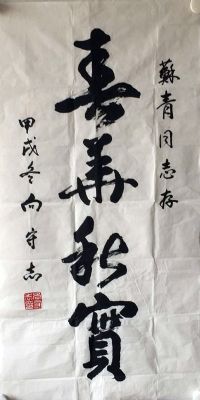 蘇青同志存
春華秋實
甲戌冬向守志